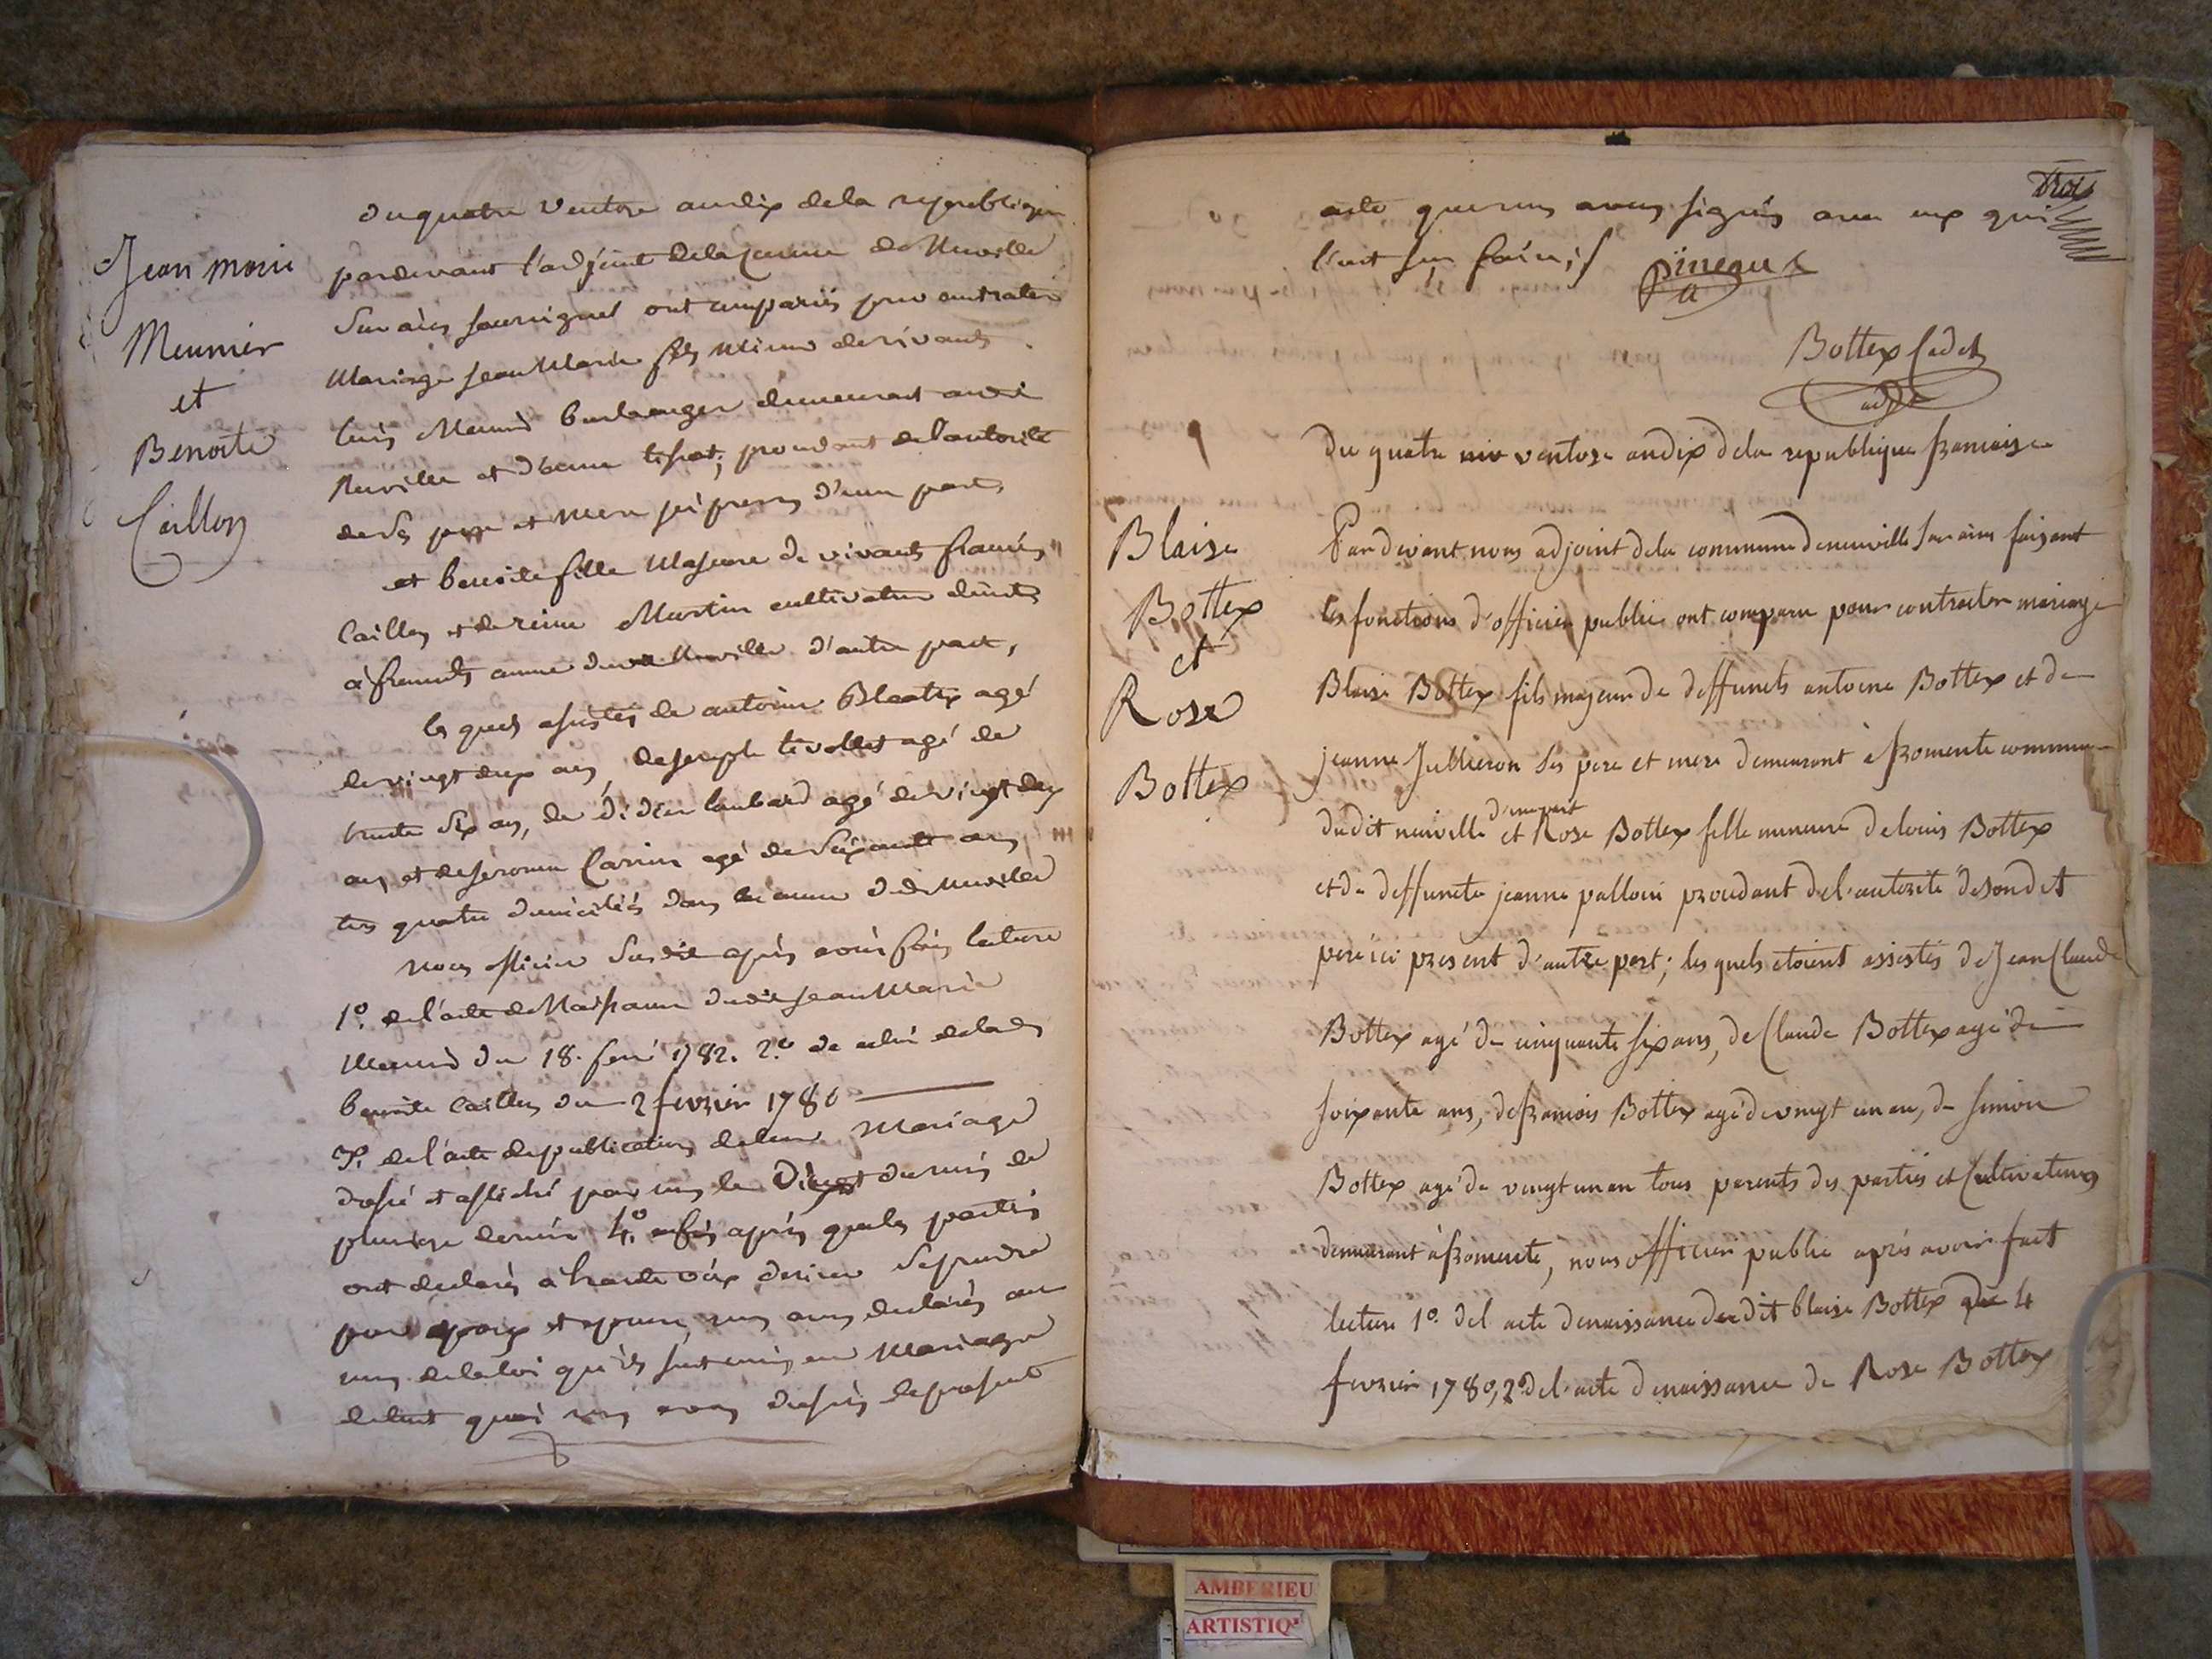 Jean marie
Meunier
et
Benoite
Caillon
du quatre Ventose an dix de la republique
pardevant l'adjoint de la commune de Neuville
Sur ains soussigned ont comparus pour contracter
Mariage Jean Marie fils Mineur de vivants
Louis Meunier boulanger demeurant audit
Neuville et d'anne procedant de l'autorité
de Ses pere et mere d'une part,
et benoite fille Majeure de vivants
Caillon et de reine Martin cultivateur
à d'autre part,
les quels de antoine Bleatrix agé
de vingt deux ans, de joseph tivollet agé de
trente Six ans, de didier lombard agé de vingt deux
ans, et de agé de Soixante ans
tous quatre domiciliés dans la commune dudit Neuville
nous officier Susdit après avoir fait lecture
1.º de l'acte de Naissance dudit Jean Marie
Meunier du 18. 1782. 2.º de celui de lade
benoite Caillon du 2 fevrier 1780
3.º de l'acte de publication de leur Mariage
et affiché par nous le du mois de
pluviose dernier 4.º enfin après que les parties
ont declarés à haute voix Se prendre
pour epoux et epouse, nous avons declarés au
nom de la loi qu'ils sont unis en Mariage
de tout quoi nous avons
trois
acte que nous avons signés avec eux qui
l'ont Su
Pineaux
Bottex Cadet
adjt
Du quatre niv ventose an dix de la republique francaise
Blaise
Bottex
et
Rose
Bottex
Pardevant nous adjoint de la commune de neuville Sur ains faisant
les fonctions d'officier public ont comparu pour contracter mariage
Blaise Bottex fils majeur de deffunts antoine Bottex et de
jeanne Jullieron Ses pere et mere demeurant à fromente commune
dudit neuville d'une part et Rose Bottex fille mineure de louis Bottex
et de deffuncte jeanne palloui procedant de l'autorité de son dit
pere ici present d'autre part; les quels etoient assistés de Jean Claude
Bottex agé de cinquante six ans, de Claude Bottex agé de
soixante ans, de francois Bottex agé de vingt un an, de Simon
Bottex agé de vingt un an tous parents des parties et Cultivateurs
demeurant à fromente, nous officier public après avoir fait
lecture 1.º del acte de naissance du dit blaise Bottex du 4
fevrier 1780, 2º del'acte de naissance de Rose Bottex
AMBERIEU
ARTISTIQ